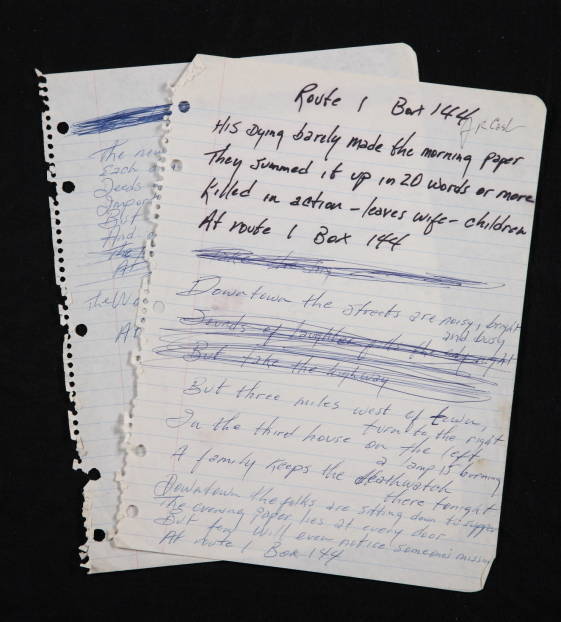 Route 1 Box 144
J R Cash
His Dying barely made the morning paper
They summed it up in 20 words or more
Killed in action - leaves wife - children
At route 1 Box 144
Downtown the streets are noisy, bright
and busy
Sounds of laughter to the edge
But take the highway
But three miles west of town,
turn to the right
In the third house on the left
a lamp is burning
A family keeps the deathwatch
there tonight
Downtown the folks are sitting down to supper
The evening paper lies at every door
But few will even notice someone's missing
At route 1 Box 144
The
Each
Deeds
Impor
But
And
The
At
The Wo
At